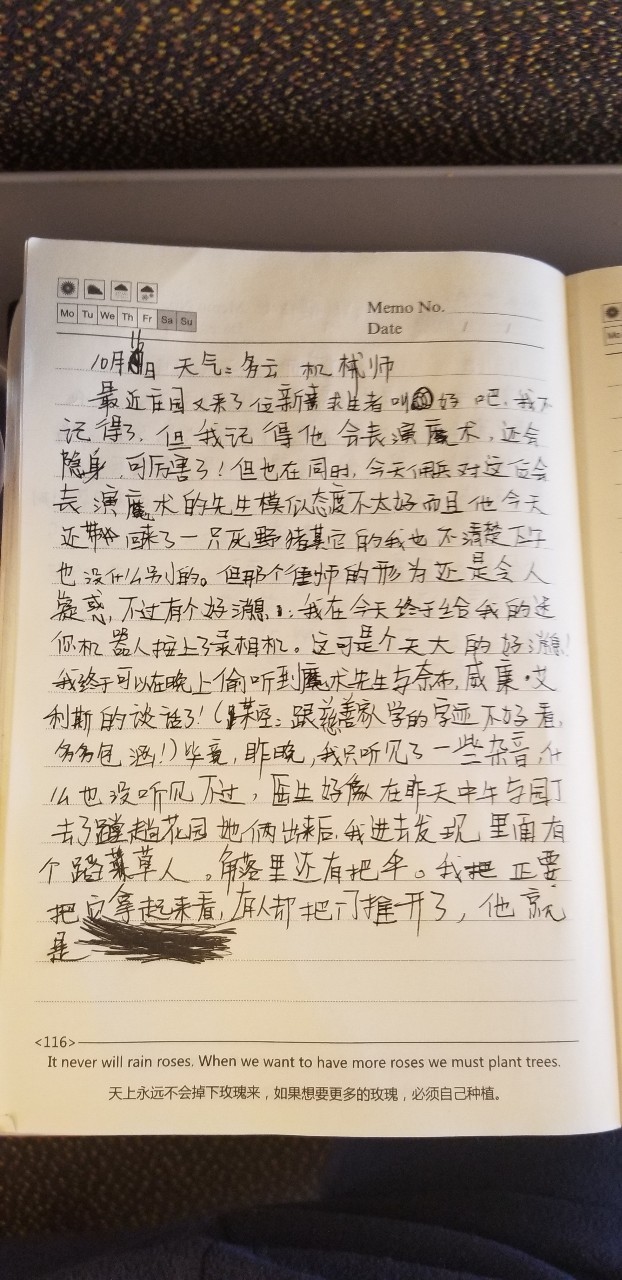 Mo Tu We Th Fr Sa Su
Memo No.
Date / /
16
10月日 天气：多云 机械师
最近庄园又来了位新求生者叫 好吧，我不
记得了，但我记得他会表演魔术，还会
隐身，可厉害了！但也在同时，今天佣兵对这位会
表演魔术的先生模似态度不太好而且他今天
还带回来了一只死野猪其它的我也不清楚下午
也没什么别的。但那个 师的形为还是令人
疑惑，不过有个好消息：我在今天终于给我的迷
你机器人按上了录相机。这可是个天大的好消息！
我终于可以在晚上偷听到魔术先生与奈布，威廉·艾
利斯的谈话了！（ ：跟慈善家学的字迹不好看，
多多包涵！）毕竟，昨晚，我只听见了一些杂音，什
么也没听见不过，医生好像在昨天中午与园丁
去了趟花园她俩出来后，我进去发现里面有
个 草人。角落里还有把伞。我正要
把它拿起来看，有人却把门推开了，他就
是
<116>
It never will rain roses. When we want to have more roses we must plant trees.
天上永远不会掉下玫瑰来，如果想要更多的玫瑰，必须自己种植。
Mo